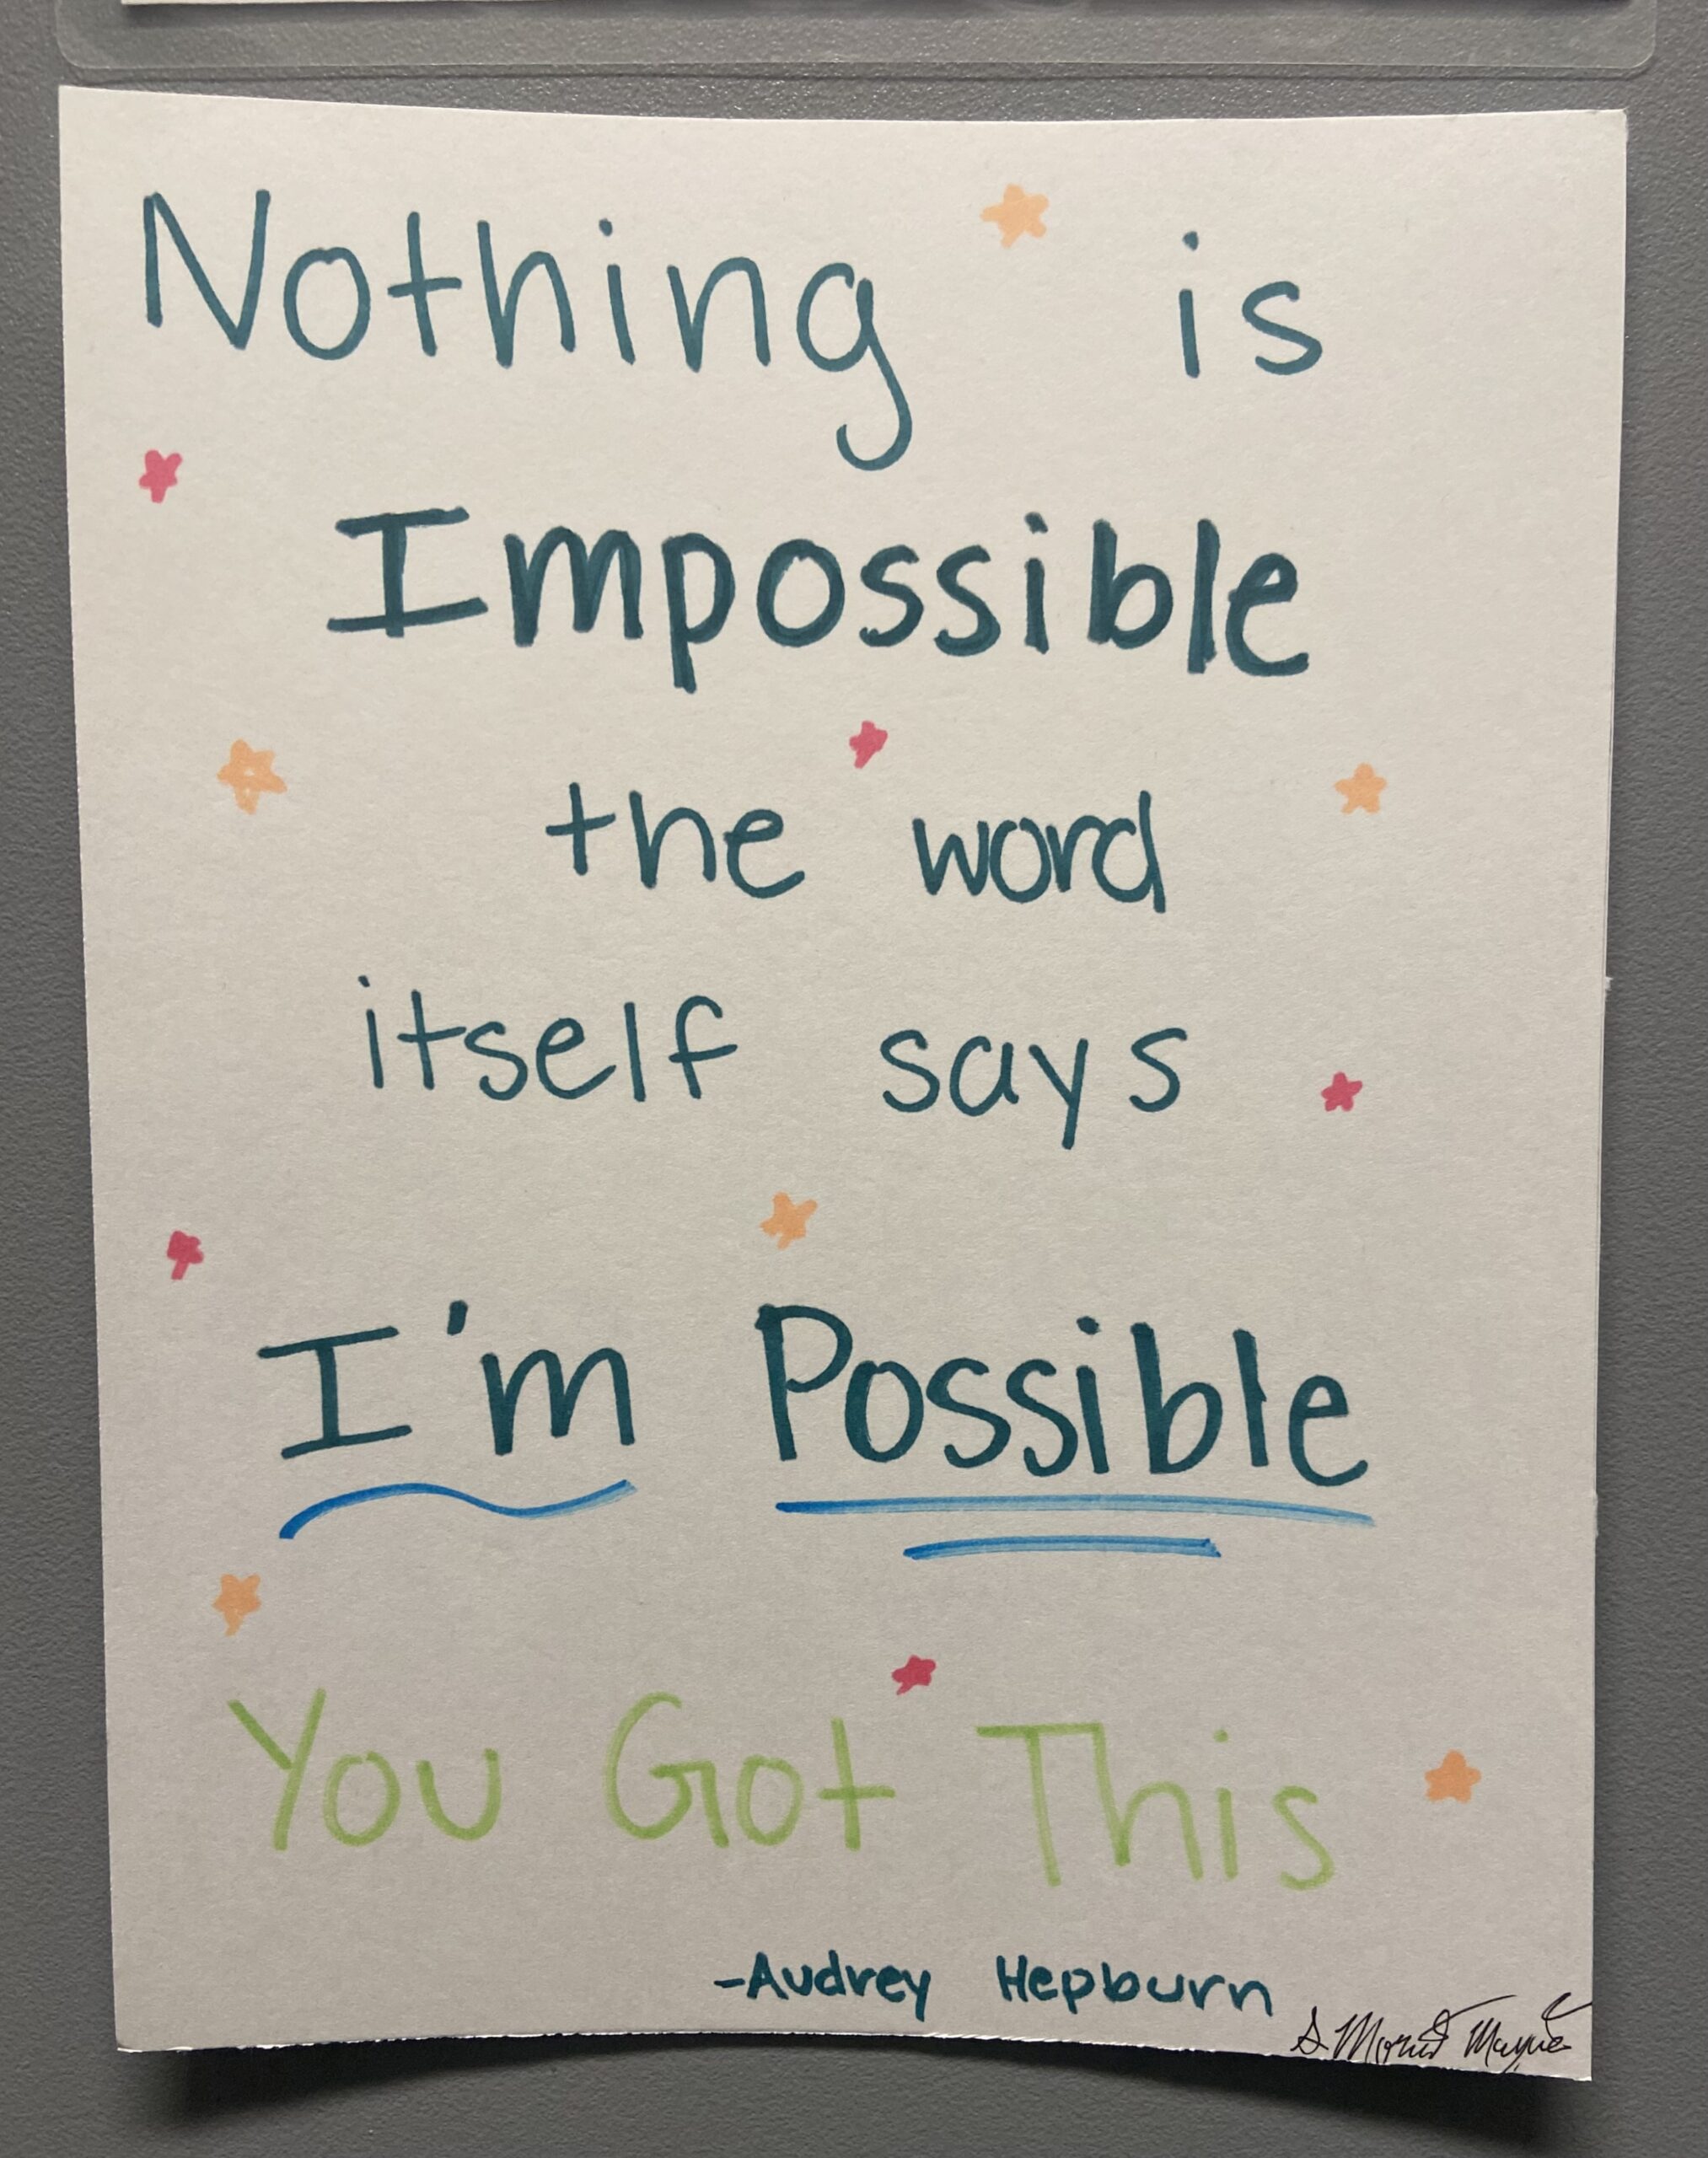 Nothing is
Impossible
the word
itself says
I'm Possible
You Got This
-Audrey Hepburn